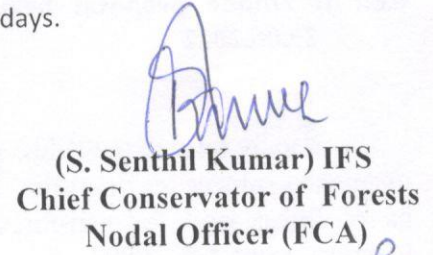 days.
(S. Senthil Kumar) IFS
Chief Conservator of Forests
Nodal Officer (FCA)